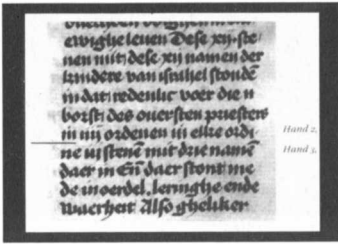 ewighe leuen Dese xij. ste
nen mit dese xij namen der
kindere van israhel stondē
in dat redenlic voer die u
borst des ouersten priesters
in iiij ordenen in elke ordi
ne iij stenē mit drie namē
daer in Eñ daer stont me
de in oerdel. leringhe ende
waerheit Also gheliker
Hand 2,
Hand 3,